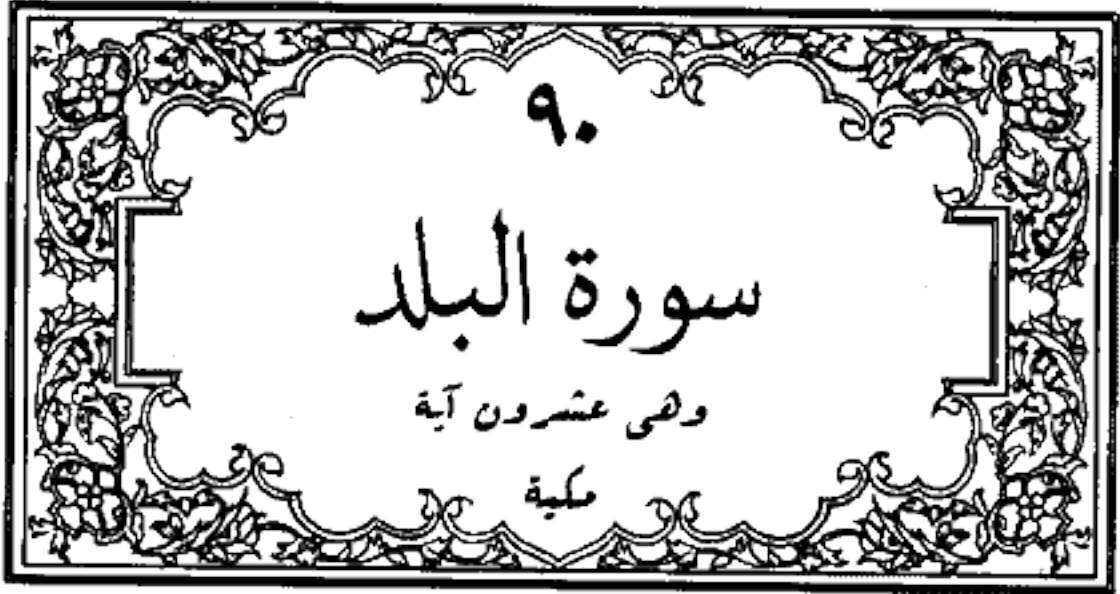 ٩٠
سورة البلد
وهى عشرون آية
مكية